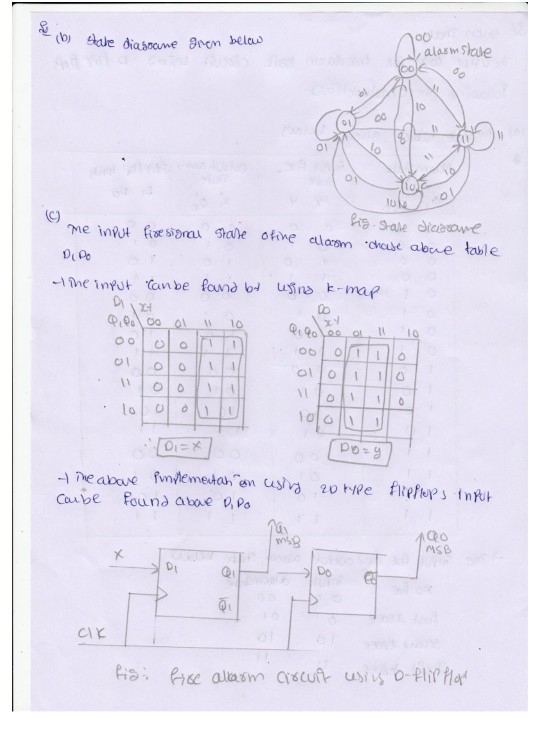 (b) state diagrame given below
00
alarm state
00
00
01
11
10
00
01
8
11
11
11
01
10
11
10
01
10
01
10
fig. state diagrame
(c)
The input fire signal state of the alarm chase above table
D1D0
The input can be found by using k-map
D1
XY
Q1Q0 00 01 11 10
00 0 0 1 1
01 0 0 1 1
11 0 0 1 1
10 0 0 1 1
∴ D1 = X
D0
XY
Q1Q0 00 01 11 10
00 0 1 1 0
01 0 1 1 0
11 0 1 1 0
10 0 1 1
D0 = y
The above using 2D type flipflops input
can be found above D1D0
Q1
MSB
Q0
MSB
X
D1
Q1
Q̄1
D0
CLK
fig: fire alarm circuit using D-flip flop